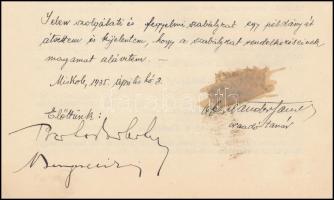 Jelen szolgálati és fegyelmi szabályzat egy példányát
átvettem és kijelentem, hogy a szabályzat rendelkezéseinek
magamat alávetem. —
Miskolc, 1935. április hó 2.
Előttünk:
óraadó tanár